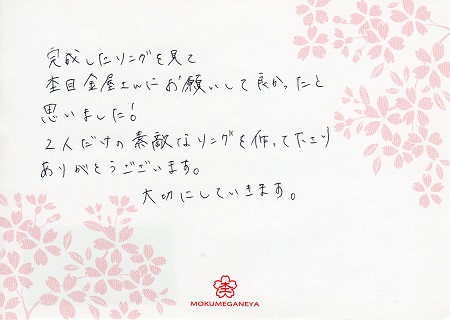 完成したリングを見て
杢目金屋さんにお願いして良かったと
思いました!
2人だけの素敵なリングを作って下さり
ありがとうございます。
大切にしていきます。
杢
MOKUMEGANEYA